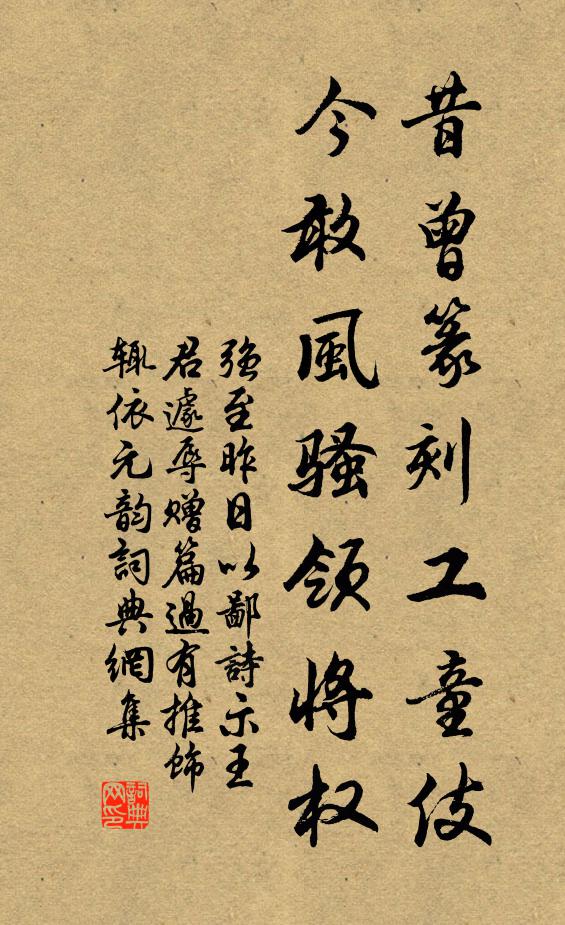 昔曾篆刻工童伎
今敢風騷領將权
强至昨日以鄙詩示王
君遽辱赠篇過有推飾
辄依元韵詞典網集
詞典网印